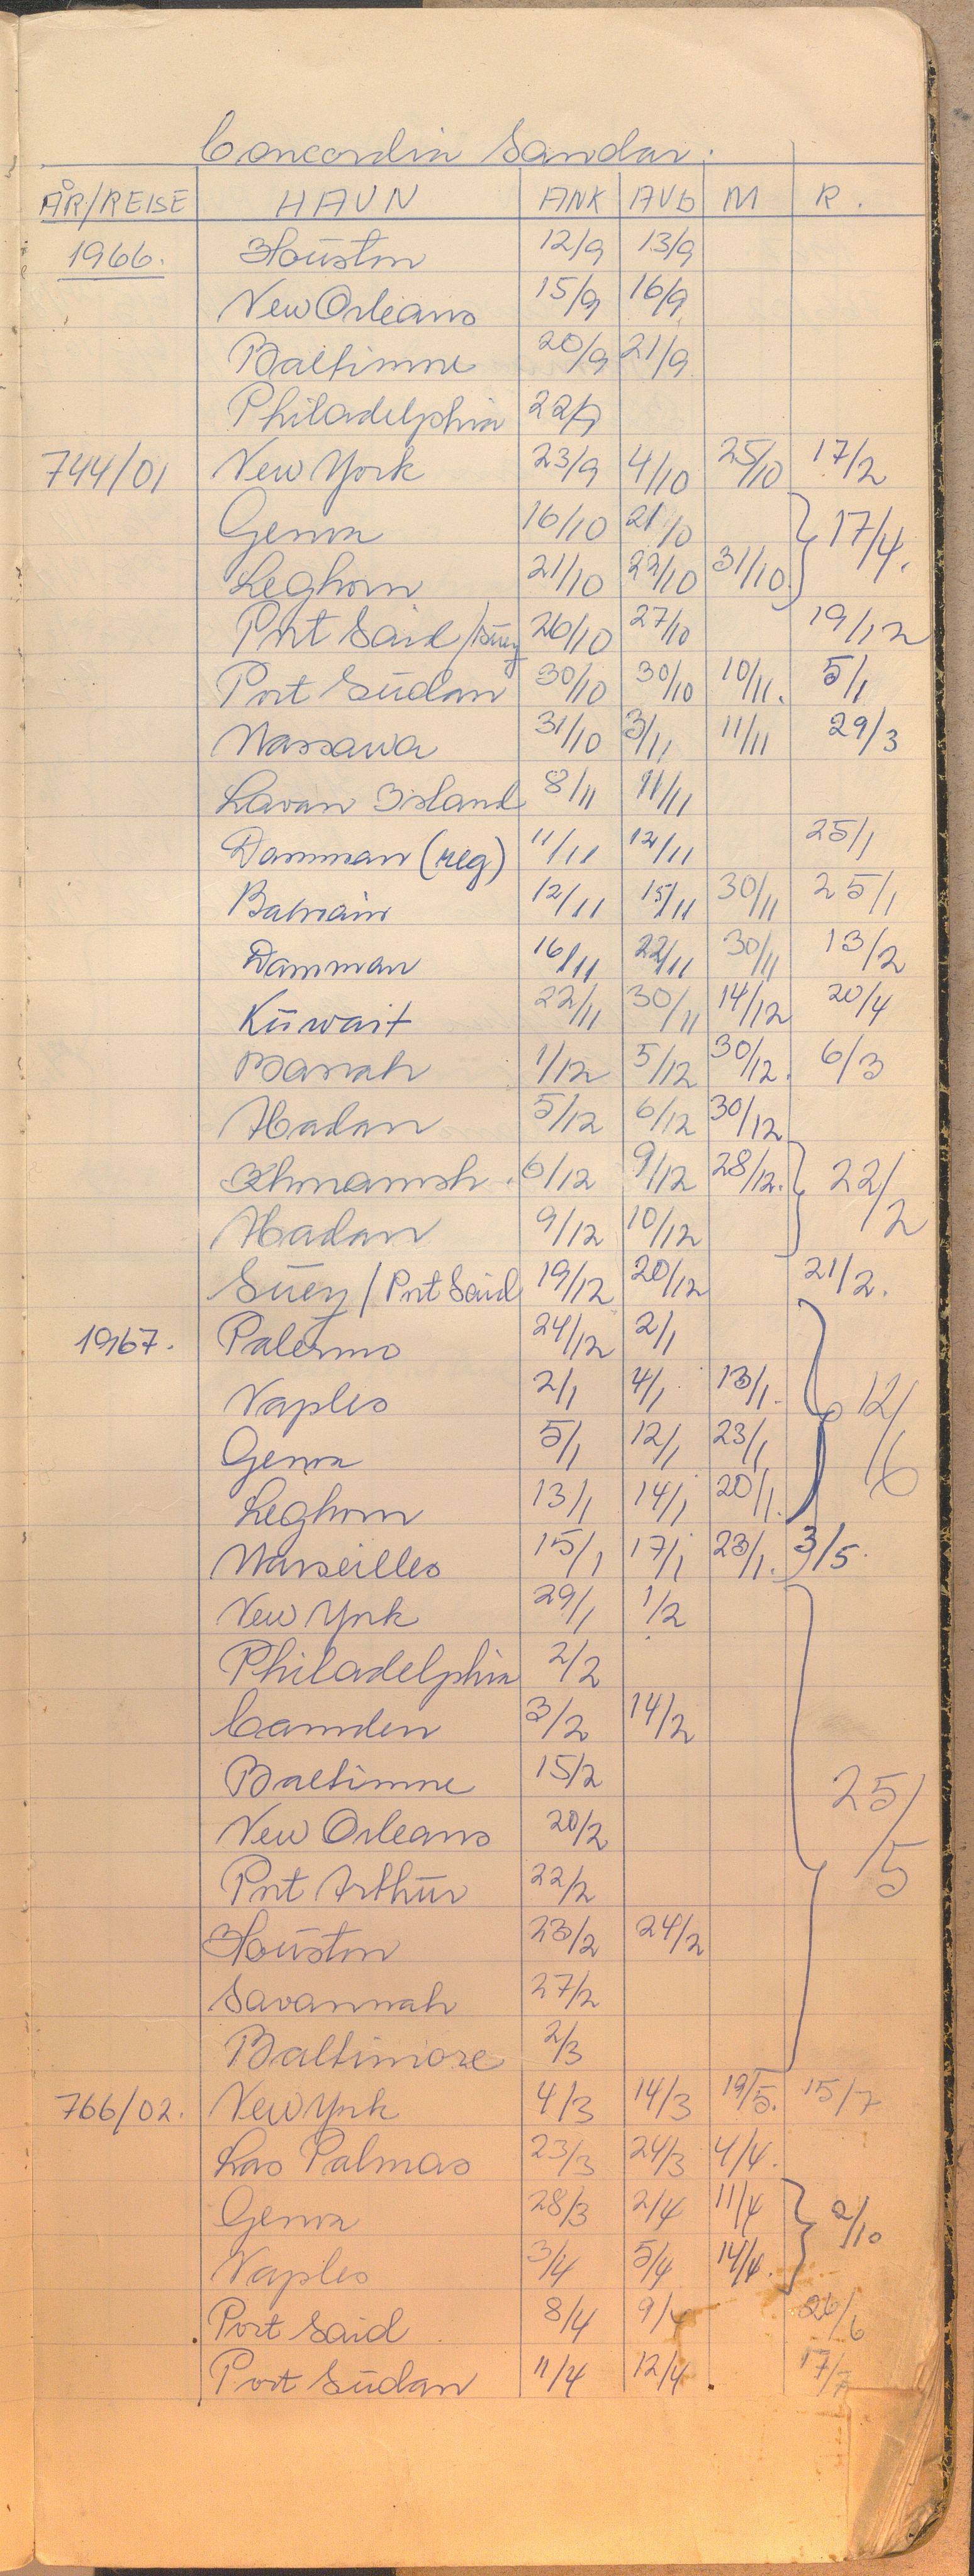 Concordia Sandar.
ÅR/REISE HAVN ANK AVG M R.
1966. Houston 12/9 13/9
New Orleans 15/9 16/9
Baltimore 20/9 21/9
Philadelphia 22/9
744/01 New York 23/9 4/10 25/10 17/2
Genoa 16/10 21/10
17/4.
Leghorn 21/10 22/10 31/10
Port Said/Suez 26/10 27/10 19/12
Port Sudan 30/10 30/10 10/11. 5/1
Massawa 31/10 3/11 11/11 29/3
Lavan Island 8/11 11/11
Damman (reg) 11/11 12/11 25/1
Bahrain 12/11 15/11 30/11 25/1
Damman 16/11 22/11 30/11 13/2
Kuwait 22/11 30/11 14/12 20/4
Basrah 1/12 5/12 30/12. 6/3
Abadan 5/12 6/12 30/12
Khoramsh. 6/12 9/12 28/12. 22/2
Abadan 9/12 10/12
Suez/Port Said 19/12 20/12 21/2.
1967. Palermo 24/12 2/1
Naples 2/1 4/1 13/1. 12/6
Genoa 5/1 12/1 23/1
Leghorn 13/1 14/1 20/1.
Marseilles 15/1 17/1 23/1. 3/5.
New York 29/1 1/2
Philadelphia 2/2
Camden 3/2 14/2
Baltimore 15/2
25/5
New Orleans 20/2
Port Arthur 22/2
Houston 23/2 24/2
Savannah 27/2
Baltimore 2/3
766/02. New York 4/3 14/3 19/5. 15/7
Las Palmas 23/3 24/3 4/4.
Genoa 28/3 2/4 11/4
2/10
Naples 3/4 5/4 14/4.
Port Said 8/4 9/4 26/6
Port Sudan 11/4 12/4. 17/7